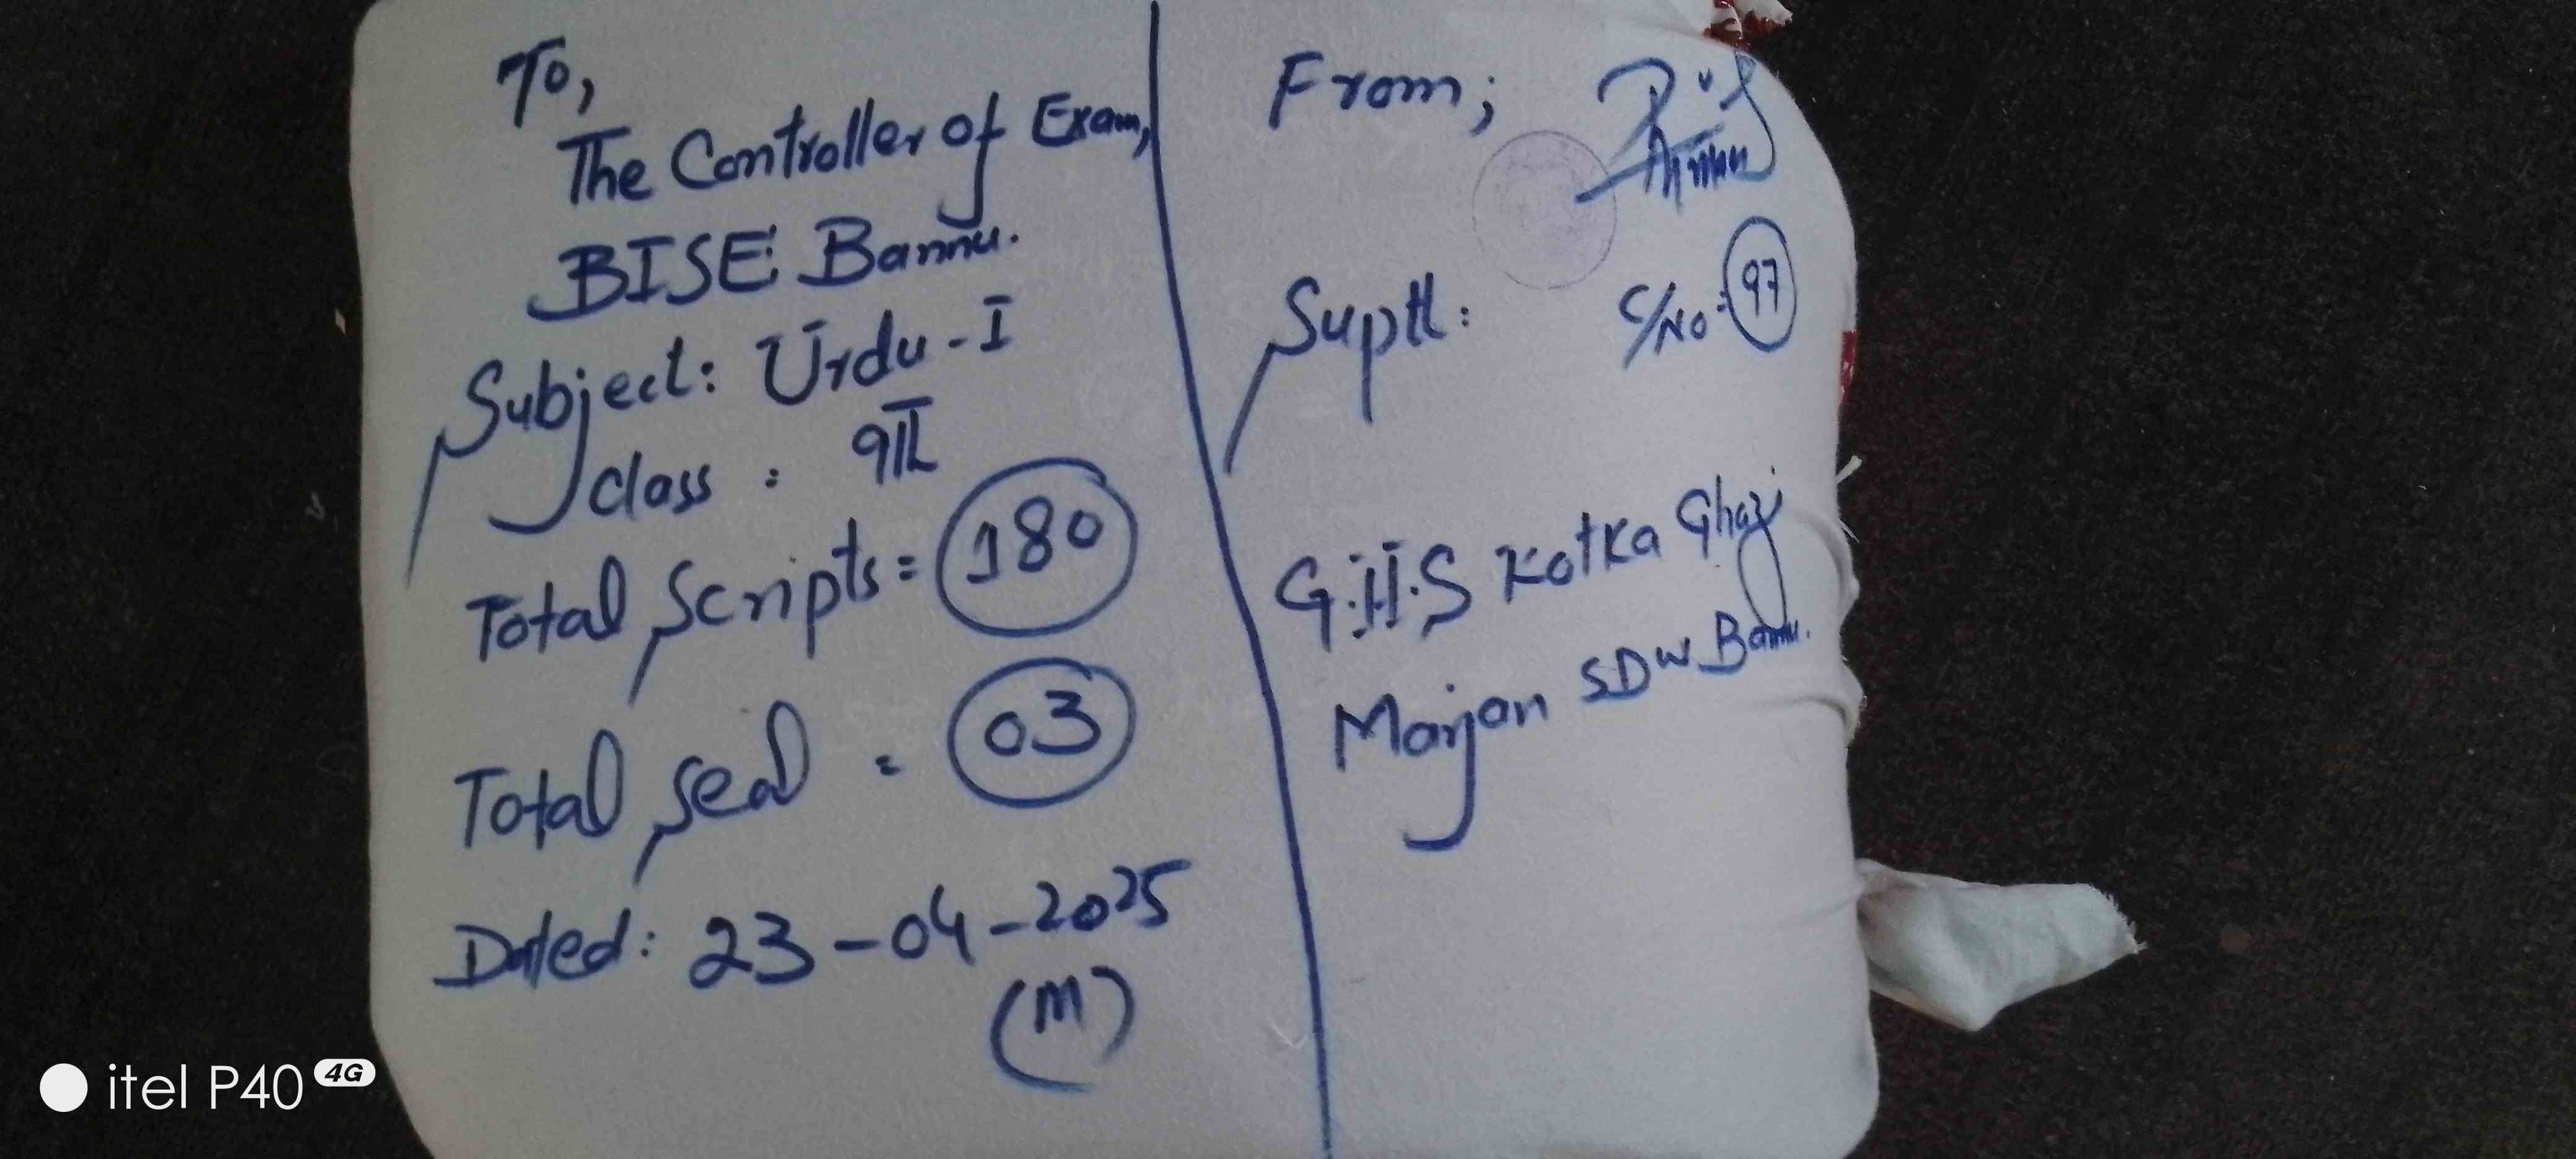 To,
The Controller of Exam,
BISE Bannu.
Subject: Urdu-I
class : 9th
Total Scripts = 180
Total Seal = 03
Dated: 23-04-2025
(M)
From;
Suptt: C/No: 97
G.H.S Kotka Ghazi
Marjan SDW Bannu.
itel P40 4G